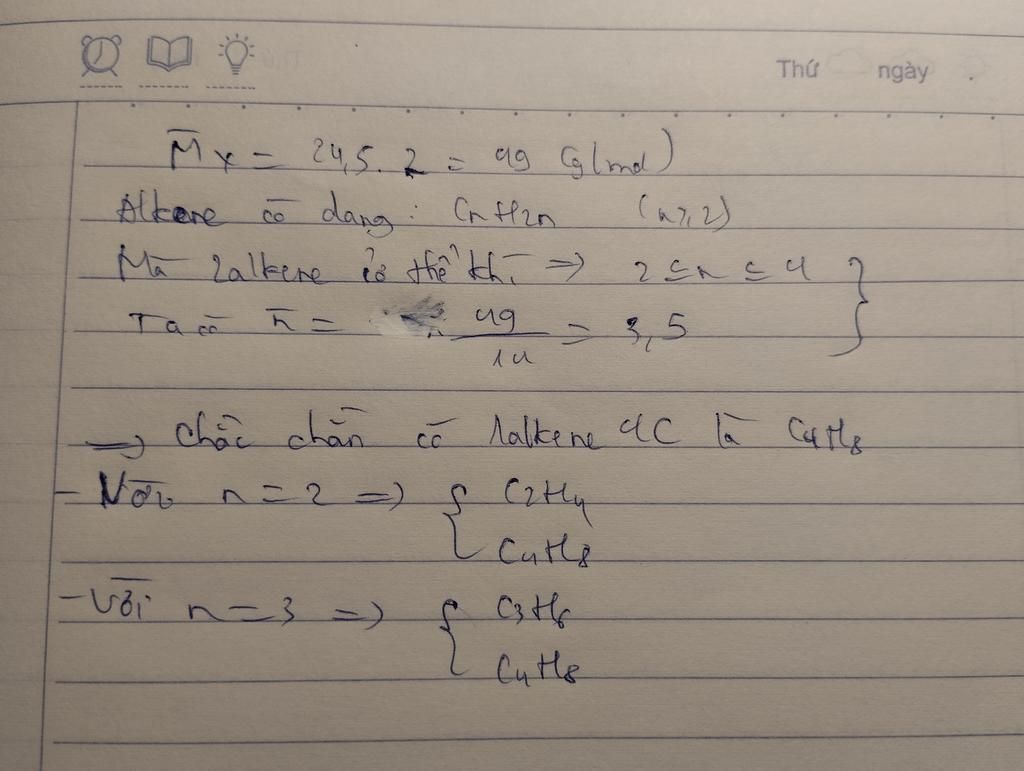 Thứ ngày .
M̄x = 24,5. 2 = 49 (g/mol)
Alkene có dạng: CnH2n (n≥2)
Mà 2alkene ở thể khí => 2 ≤ n ≤ 4 }
Ta có n̄ = 49/14 = 3,5
=> chắc chắn có 1alkene 4C là C4H8
- Với n = 2 => { C2H4
C4H8
- Với n = 3 => { C3H6
C4H8